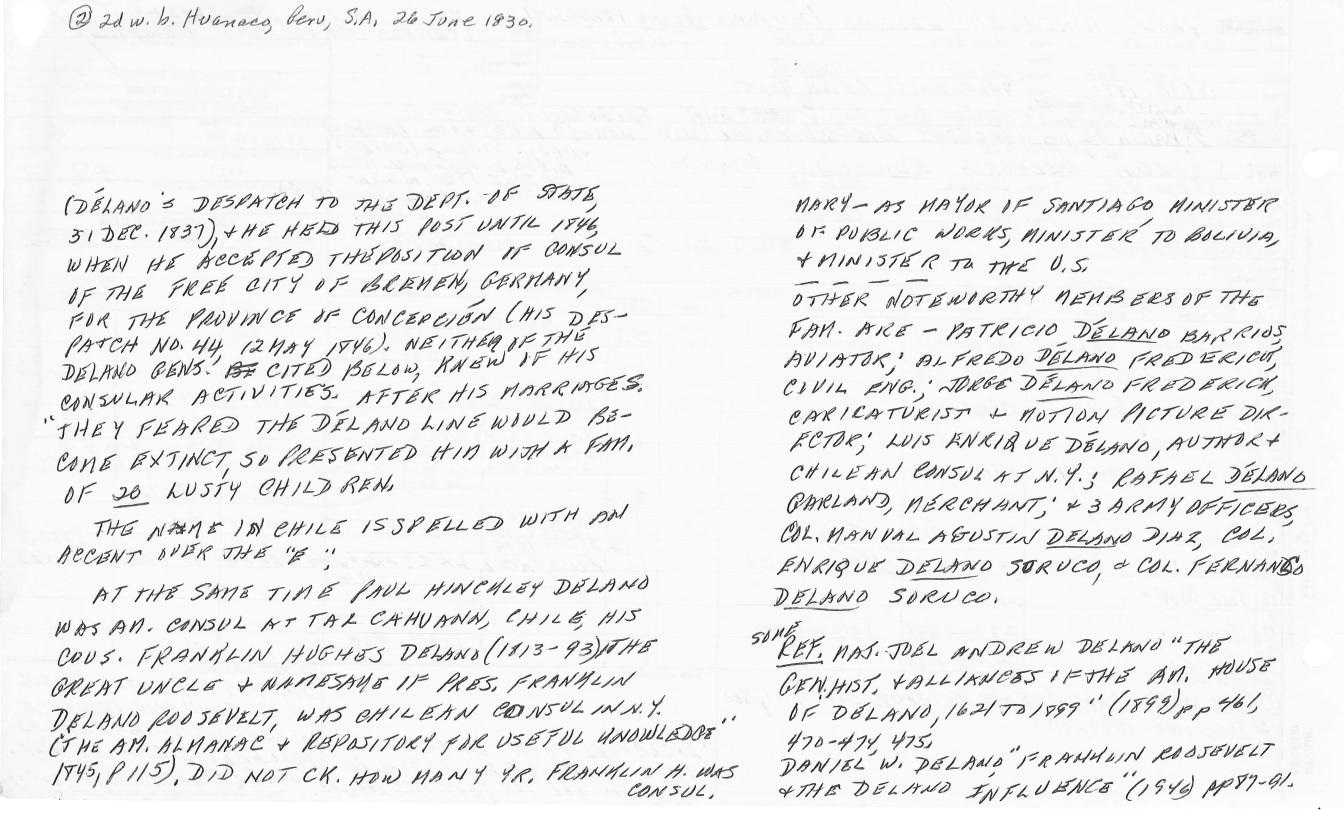 ② 2d w. b. Huanaco, Peru, S.A. 26 June 1830.
(DÉLANO'S DESPATCH TO THE DEPT. OF STATE,
31 DEC. 1837), & HE HELD THIS POST UNTIL 1846,
WHEN HE ACCEPTED THE POSITION OF CONSUL
OF THE FREE CITY OF BREMEN, GERMANY,
FOR THE PROVINCE OF CONCEPCIÓN (HIS DES-
PATCH NO. 44, 12 MAY 1846). NEITHER OF THE
DELANO GENS. CITED BELOW, KNEW OF HIS
CONSULAR ACTIVITIES. AFTER HIS MARRIAGES.
"THEY FEARED THE DÉLANO LINE WOULD BE-
COME EXTINCT, SO PRESENTED HIM WITH A FAM.
OF 20 LUSTY CHILDREN.
THE NAME IN CHILE IS SPELLED WITH AN
ACCENT OVER THE "E".
AT THE SAME TIME PAUL HINCHLEY DELANO
WAS AM. CONSUL AT TAL CAHUANN, CHILE, HIS
COUS. FRANKLIN HUGHES DELANO (1813-93) THE
GREAT UNCLE & NAMESAME OF PRES. FRANKLIN
DELANO ROOSEVELT, WAS CHILEAN CONSUL IN N.Y.
("THE AM. ALMANAC & REPOSITORY FOR USEFUL KNOWLEDGE"
1845, P 115). DID NOT CK. HOW MANY YR. FRANKLIN H. WAS
CONSUL.
MARY - AS MAYOR OF SANTIAGO, MINISTER
OF PUBLIC WORKS, MINISTER TO BOLIVIA,
& MINISTER TO THE U.S.
OTHER NOTEWORTHY MEMBERS OF THE
FAM. ARE - PATRICIO DÉLANO BARRIOS,
AVIATOR; ALFREDO DÉLANO FREDERICK,
CIVIL ENG.; JORGE DÉLANO FREDERICK,
CARICATURIST & MOTION PICTURE DIR-
ECTOR; LUIS ENRIQUE DÉLANO, AUTHOR &
CHILEAN CONSUL AT N.Y.; RAFAEL DÉLANO
GARLAND, MERCHANT; & 3 ARMY OFFICERS,
COL. MANUAL AGUSTIN DELANO DIAZ, COL.
ENRIQUE DELANO SORUCO, & COL. FERNANDO
DELANO SORUCO.
SOME
REF. MAJ. JOEL ANDREW DELANO "THE
GEN. HIST. & ALLIANCES OF THE AM. HOUSE
OF DÉLANO, 1621 TO 1899" (1899) pp 461,
470-474, 475.
DANIEL W. DELANO "FRANKLIN ROOSEVELT
& THE DELANO INFLUENCE" (1946) pp 87-91.